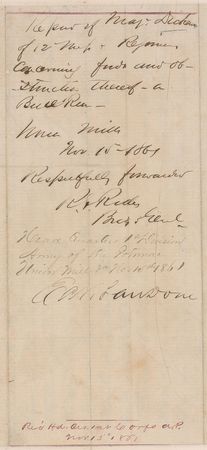 Report of Maj. Dickens
of 12 Miss. Regimen
Concerning fords and ob-
struction thereof - a
Bull Run -
Union Mills
Nov 15 - 1861
Respectfully forwarded
R. E. Rodes
Brig. Genl.
Head Quarters 1st Division
Army of the Potomac
Union Mills Nov 15th 1861
Recd Hd. Qrs. 1st Corps A.P.
Nov 15 1861